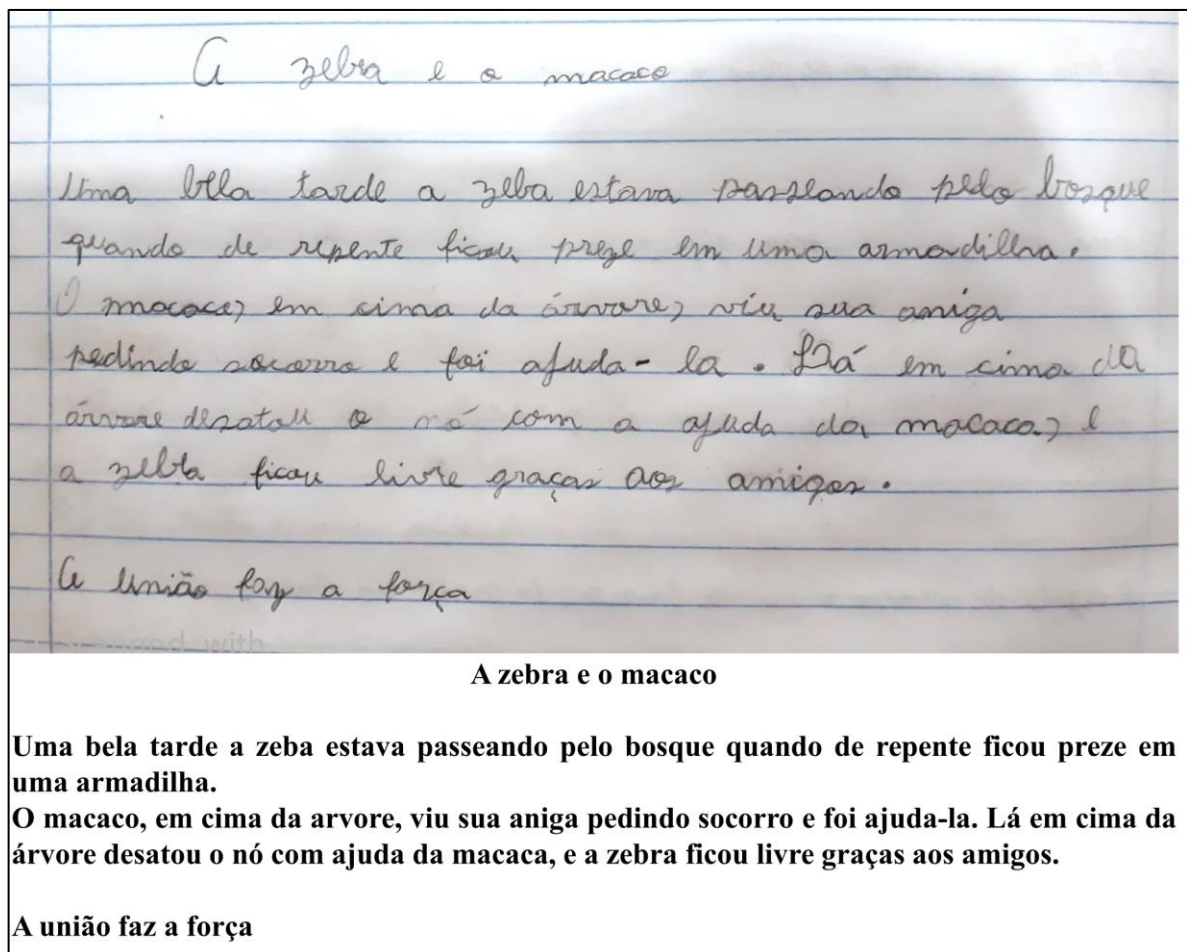 A zebra e o macaco
Uma bela tarde a zeba estava passeando pelo bosque
quando de repente ficou preze em uma armadilha.
O macaco, em cima da árvore, viu sua amiga
pedindo socorro e foi ajuda-la. Lá em cima da
árvore desatou o nó com a ajuda da macaca, e
a zebra ficou livre graças aos amigos.
A união faz a força
with
A zebra e o macaco
Uma bela tarde a zeba estava passeando pelo bosque quando de repente ficou preze em
uma armadilha.
O macaco, em cima da arvore, viu sua aniga pedindo socorro e foi ajuda-la. Lá em cima da
árvore desatou o nó com ajuda da macaca, e a zebra ficou livre graças aos amigos.
A união faz a força